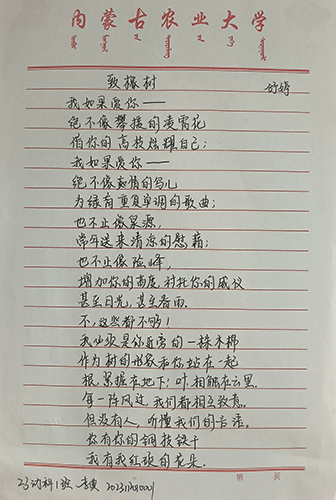 内蒙古农业大学
致橡树
舒婷
我如果爱你——
绝不像攀援的凌霄花
借你的高枝炫耀自己；
我如果爱你——
绝不学痴情的鸟儿
为绿荫重复单调的歌曲；
也不止像泉源，
常年送来清凉的慰藉；
也不止像险峰，
增加你的高度，衬托你的威仪
甚至日光，甚至春雨。
不，这些都不够！
我必须是你近旁的一株木棉
作为树的形象和你站在一起
根，紧握在地下；叶，相触在云里。
每一阵风过，我们都相互致意，
但没有人，听懂我们的言语。
你有你的铜枝铁干
我有我红硕的花朵。
第 页